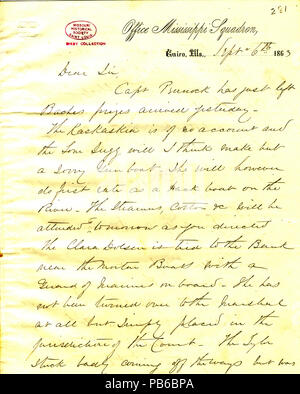 281
MISSOURI
HISTORICAL
SOCIETY
SAINT LOUIS
BIXBY COLLECTION
Office Mississippi Squadron,
Cairo, Ills., Sept 6th 1863
Dear Sir
Capt Pennock has just left
prizes arrived yesterday -
The Kaskaskia is of no account and
the Tom Sugg will I think make but
a sorry Gun boat. She will however
do first rate as a boat on the
River. The Steamers, &c will be
attended to tomorrow as you directed
The Clara Dolsen is tied to the Bank
near the Mortar Boats with a
Guard of Marines on board. She has
not been turned over to the Marshal
at all but simply placed in the
jurisdiction of the Court. The
stuck badly coming off the ways but was
alamy
Image ID: PB6BPA
www.alamy.com